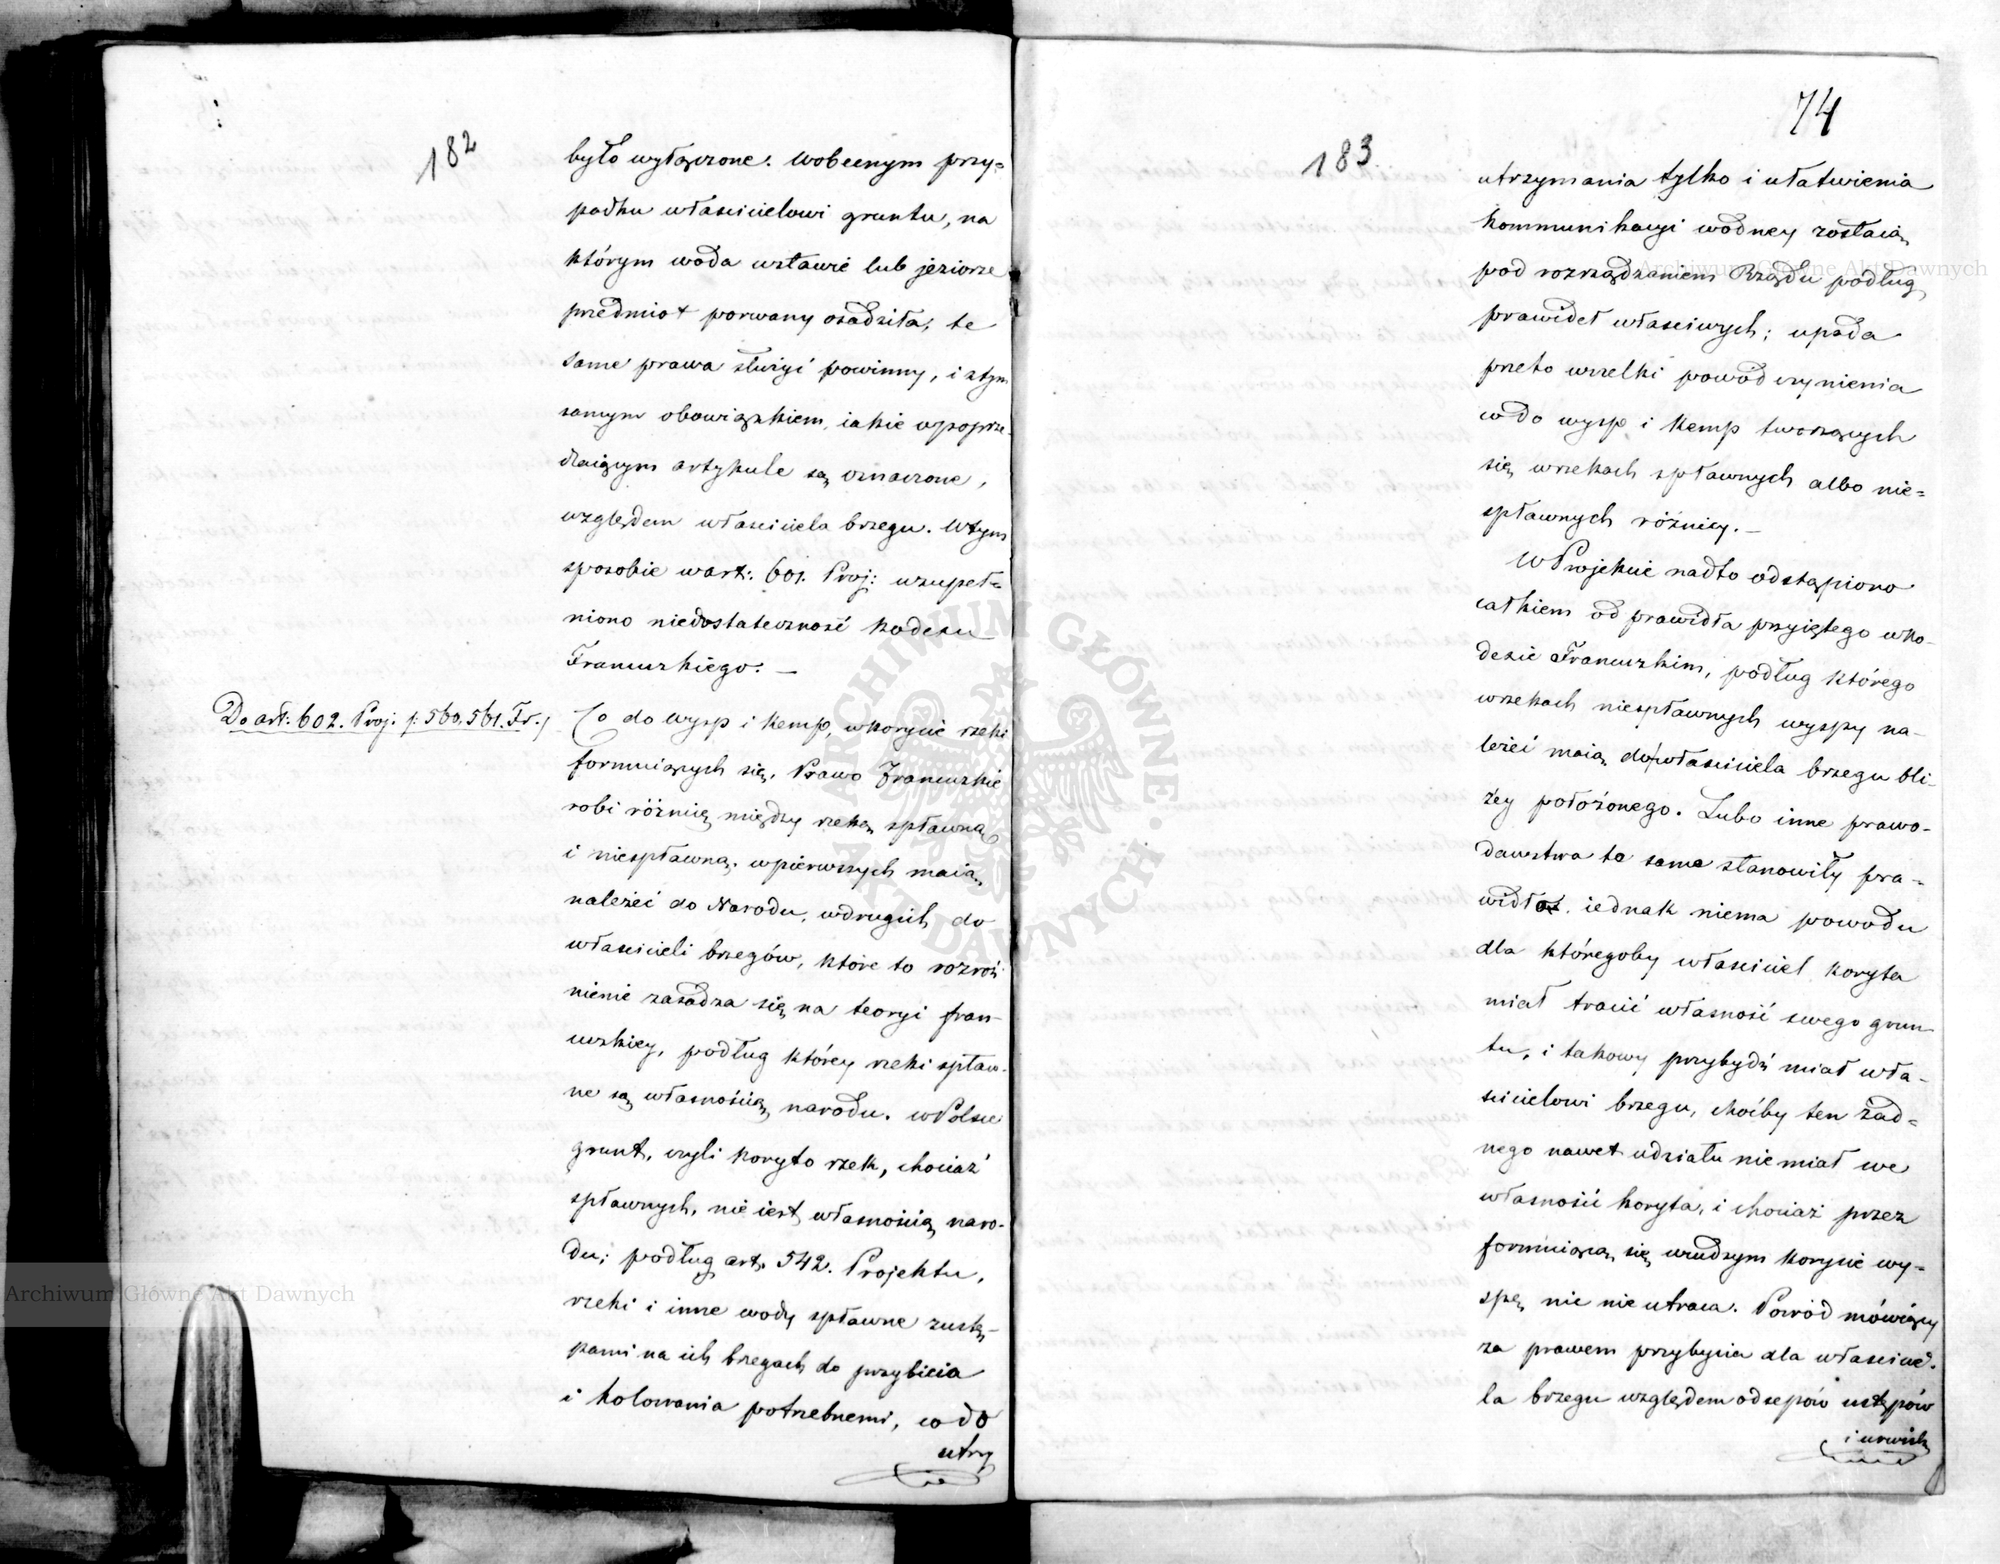 182
było wyłączone. Wobecnym przy=
padku właścicielowi gruntu, na
którym woda wstawie lub jeziorze
przedmiot porwany osadziła, te
same prawa służyć powinny, i ztym
samym obowiązkiem, iakie wpoprze-
dzaiącym artykule są oznaczone,
względem właściciela brzegu. Wtym
sposobie wart: 601. Proj: uzupeł=
niono niedostateczność Kodexu
Francuzkiego. —
Do art: 602. Proj. /: 560, 561. Fr. /
Co do wysp i Kemp, wkorycie rzeki
formuiących się, Prawo Francuzkie
robi różnicę między rzeką spławną
i niespławną. wpierwszych maią
należeć do Narodu, wdrugich do
właścicieli brzegów, które to rozroż
nienie zasadza się na teoryi fran-
cuzkiey, podług którey rzeki spław-
ne są własnością narodu. wPolsce
grunt, czyli koryto rzek, chociaż
spławnych, nie iest własnością naro-
du; podług art. 542. Projektu,
rzeki i inne wody spławne zustę-
pami na ich brzegach do przybicia
i holowania potrzebnemi, co do
utrzy
74
183
utrzymania tylko i ułatwienia
Kommunikacyi wodney zostaią
pod rozrządzaniem Rządu podług
prawideł właściwych; upada
przeto wszelki powód czynienia
codo wysp i Kemp tworzących
się wrzekach spławnych albo nie=
spławnych różnicy. —
WProjekcie nadto odstąpiono
całkiem od prawidła przyiętego wKo-
dexie Francuzkim, podług którego
wrzekach niespławnych wyspy na-
leżeć maią do właściciela brzegu bli-
żey położonego. Lubo inne prawo-
dawstwa to same stanowiły pra-
widło, iednak niema powodu
dla któregoby właściciel koryta
miał tracić własność swego grun-
tu, i takowy przybydź miał wła-
ścicielowi brzegu, choćby ten żad=
nego nawet udziału niemiał we
własności koryta, i chociaż przez
formuiącą się wcudzym korycie wy-
spę nic nie utraca. Powód mówiący
za prawem przybycia dla właścicie-
la brzegu względem odsepów ustępów
i urwisk
Archiwum Główne Akt Dawnych
Archiwum Główne Akt Dawnych
ARCHIWUM GŁÓWNE AKT DAWNYCH